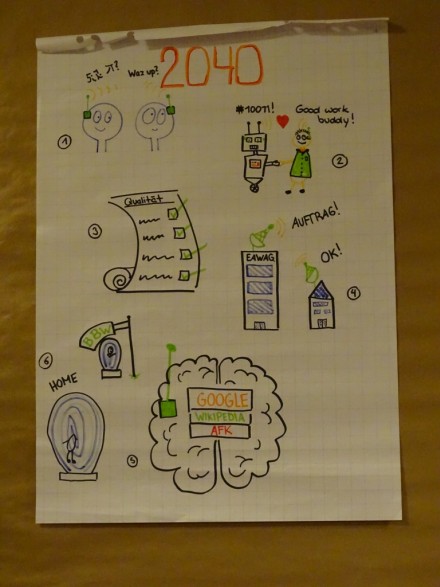 2040
Waz up?
1
#10011!
Good work
buddy!
2
Qualität
3
AUFTRAG!
EAWAG
OK!
4
BBW
6
HOME
GOOGLE
WIKIPEDIA
AFK
5